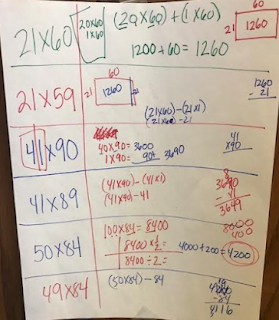 21x60
20x60
1x60
(20x60) + (1x60)
1200+60 = 1260
60
21
1260
21x59
60
21
1260
(21x60)-(21x1)
(21x60)-21
1260
- 21
41x90
40x90=3600
1x90= 90
3690
41
x90
41x89
(41x90)-(41x1)
(41x90)-41
3690
- 41
3649
50x84
100x84 = 8400
8400 x ½ =
8400 ÷ 2 =
4000+200=4200
8000
400
49x84
(50x84)-84
4200
-84
4116